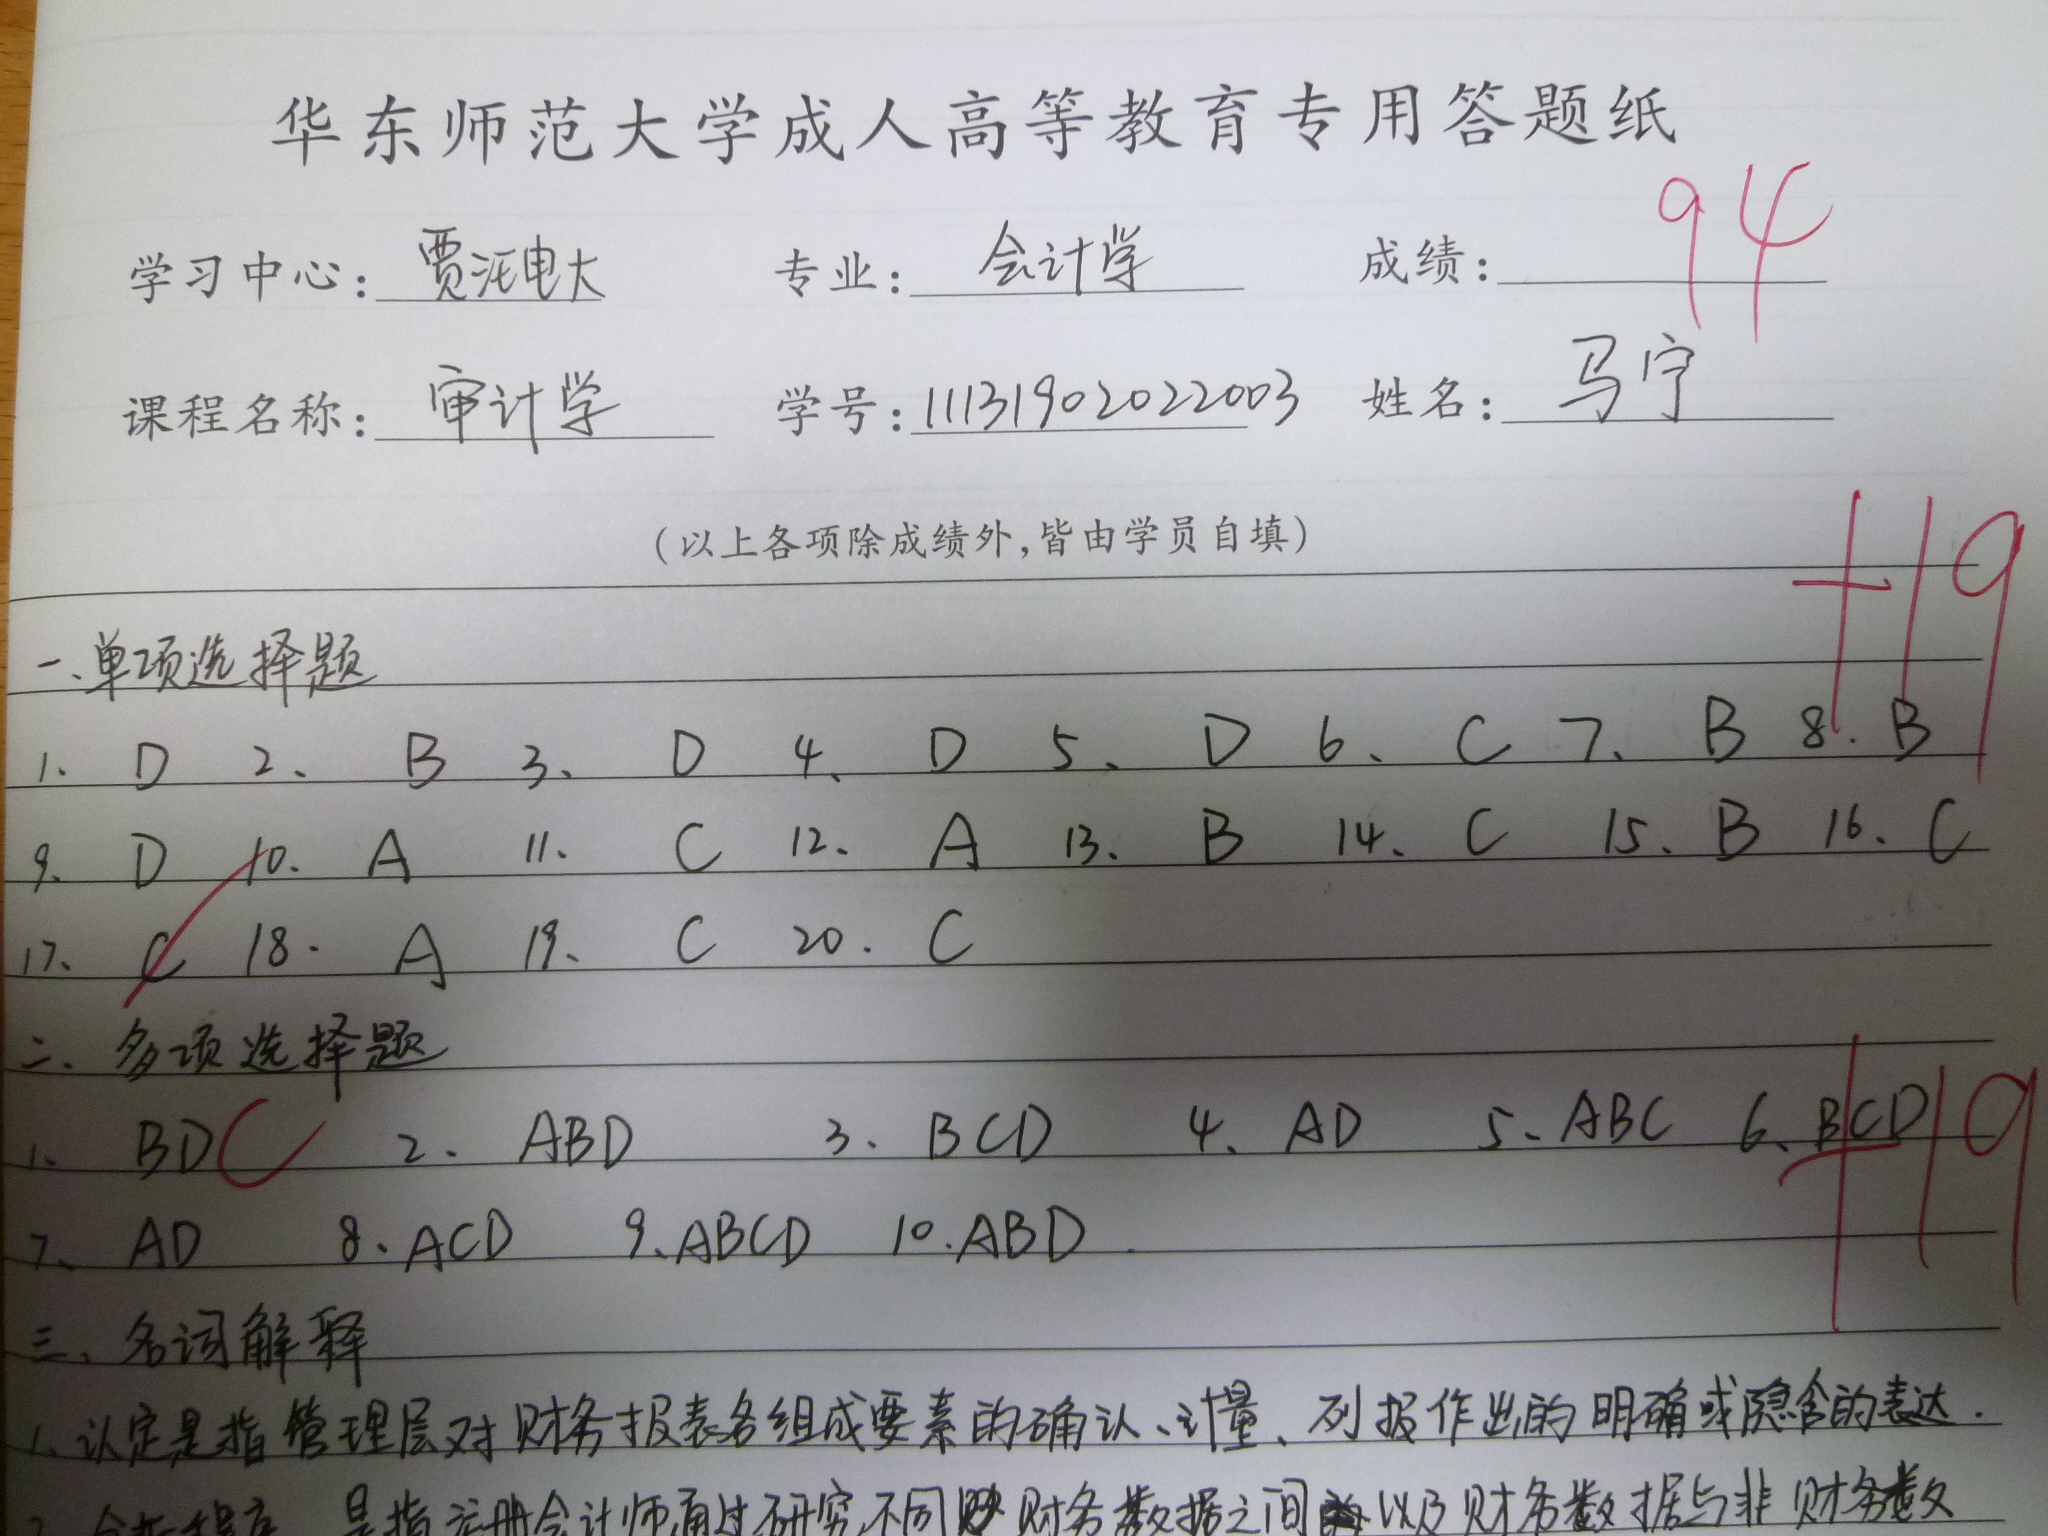 华东师范大学成人高等教育专用答题纸
学习中心: 贾汪电大 专业: 会计学 成绩: 94
课程名称: 审计学 学号: 11131902022003 姓名: 马宁
(以上各项除成绩外,皆由学员自填)
+19
一、单项选择题
1、 D 2、 B 3、 D 4、 D 5、 D 6、 C 7、 B 8. B
9、 D 10. A 11. C 12. A 13. B 14. C 15. B 16. C
17、 C 18. A 19、 C 20. C
二、多项选择题 +19
1、 BDC 2. ABD 3. BCD 4、 AD 5、ABC 6、BCD
7、 AD 8、ACD 9、ABCD 10.ABD.
三、名词解释
1、认定是指管理层对财务报表各组成要素的确认、计量、列报作出的明确或隐含的表达.
2、分析程序 是指注册会计师通过研究不同财务数据之间以及财务数据与非财务数